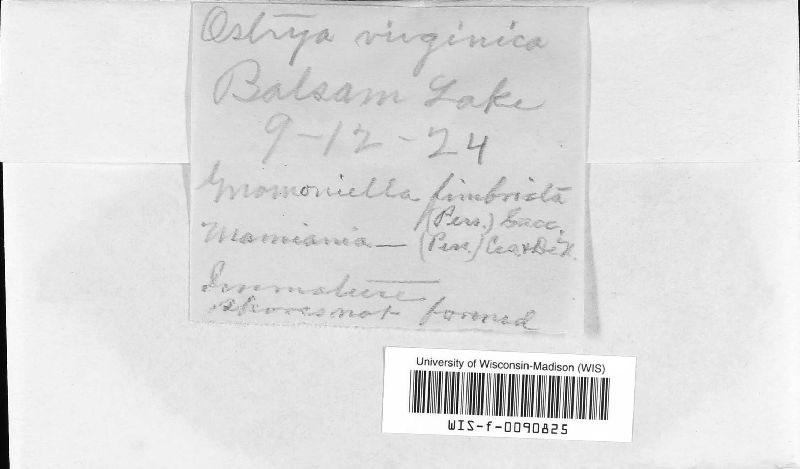 Ostrya virginica
Balsam Lake
9-12-24
Gnomoniella fimbriata
(Pers.) Sacc.
Mamiania — (Pers.) Ces. & De N.
Immature
spores not formed
University of Wisconsin-Madison (WIS)
WIS-f-0090825